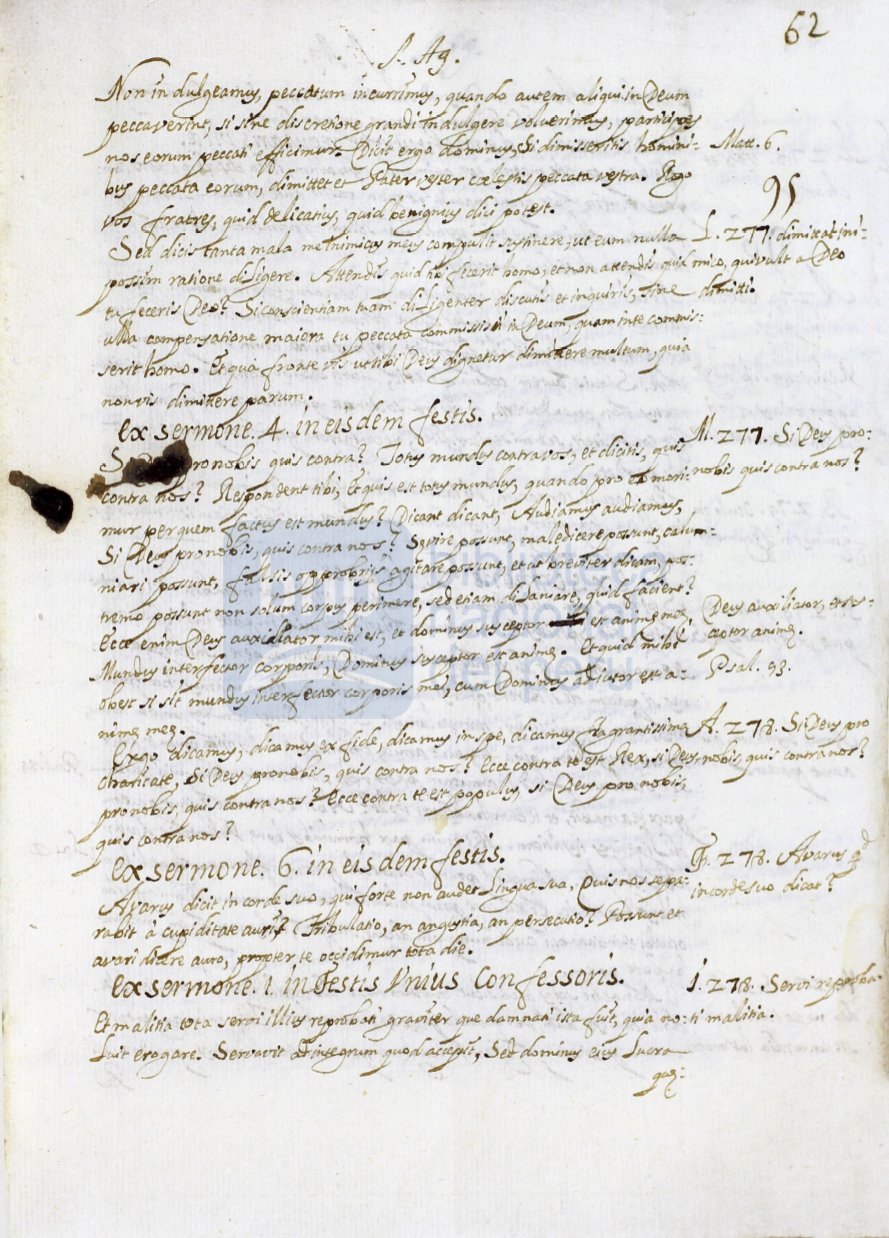 62
S. Ag.
Non indulgeamus, peccatum incurrimus, quando autem aliqui in Deum
peccaverint, si sine discretione grandi indulgere voluerimus, participes
nos eorum peccati efficimur. Dicit ergo dominus, Si dimisseritis homini- Matt. 6.
bus peccata eorum, dimittet et Pater vester cœlestis peccata vestra. Rogo
vos fratres, quid delicatius, quid benignius dici potest.
95
Sed dicis tanta mala me inimicus meus compulit sustinere, ut eum nulla L. 277. dimittat ini-
possim ratione diligere. Attendis quid tibi fecerit homo, et non attendis quid mico, qui vult a Deo
tu feceris Deo? Si conscientiam tuam diligenter discutis et inquiris, sine dimitti.
ulla compensatione maiora tu peccata commissisti in Deum, quam in te commis:
serit homo. Et qua fronte vis ut tibi Deus dignetur dimittere multum, quia
non vis dimittere parum.
Ex sermone. 4. in eisdem festis.
pro nobis quis contra? Totus mundus contra vos, et dicitis, quis M. 277. Si Deus pro-
contra nos? Respondent tibi, Et quis est totus mundus, quando pro eo mori: nobis quis contra nos?
mur per quem factus est mundus? Dicant dicant, Audiamus audiamus,
Si Deus pro nobis, quis contra nos? Sevire possunt, maledicere possunt, calum-
niari possunt, falsis opprobrijs agitare possunt, et ut breviter dicam, pos-
tremo possunt non solum corpus perimere, sed etiam dilaniare, quid facient?
Ecce enim Deus auxiliator mihi est, et dominus susceptor est animę meę, Deus auxiliator, et sus-
Mundus interfector corporis, Dominus susceptor est animę. Et quid mihi ceptor animę.
obest si sit mundus interfector corporis mei, cum Dominus adiutor est a- Psal. 93.
nimę meę.
Ergo dicamus, dicamus ex fide, dicamus in spe, dicamus flagrantissima A. 278. Si Deus pro
charitate, Si Deus pro nobis, quis contra nos? Ecce contra te est Rex, si Deus nobis, quis contra nos?
pro nobis, quis contra nos? Ecce contra te est populus, si Deus pro nobis,
quis contra nos?
Ex sermone. 6. in eisdem festis.
Avarus dicit in corde suo, qui forte non audet lingua sua, Quis nos sepa: 278. Avarus qd
rabit à cupiditate auri? Tribulatio, an angustia, an persecutio? Possunt et in corde suo dicat?
avari dicere auro, propter te occidimur tota die.
Ex sermone. 1. in festis Unius Confessoris.
Et malitia tota servi illius reprobati graviter que damnati ista fuit, quia no: 1. 278. Servi reproba-
luit erogare. Servavit ad integrum quod accepit, Sed dominus eius lucra ti malitia.
quę-
biblioteca nacional del perú